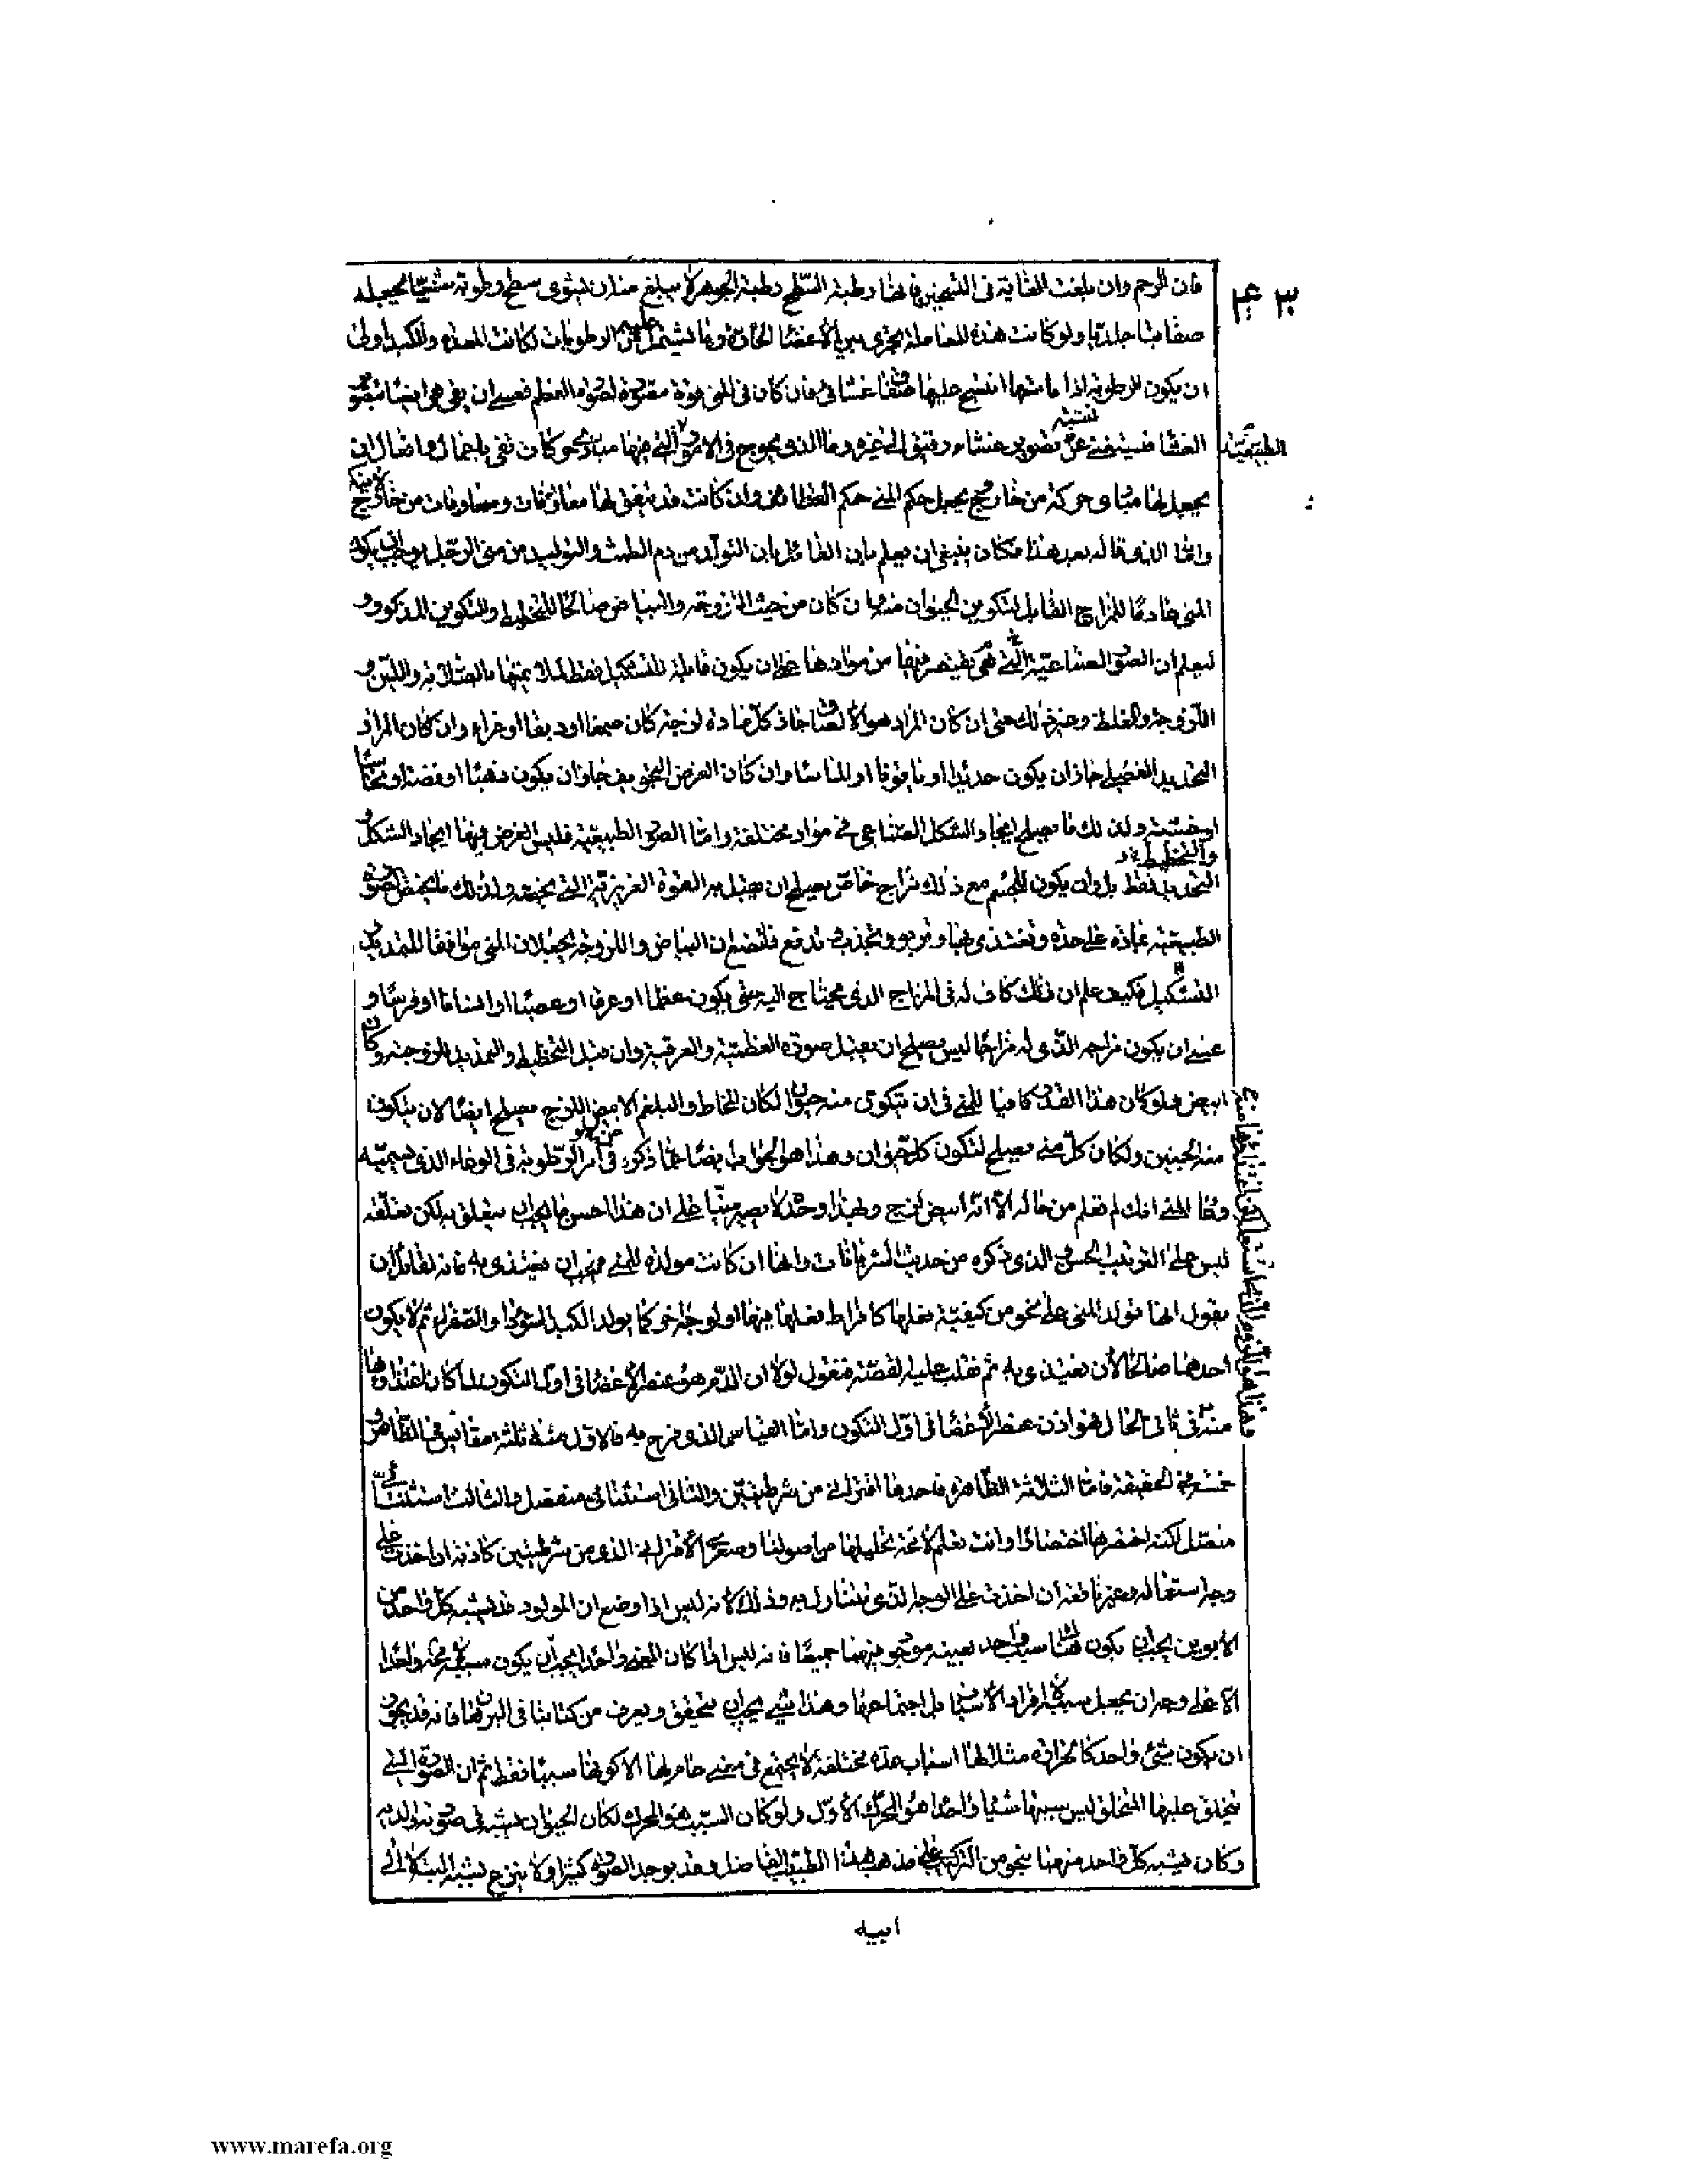 فان الرحم وان بلغت الغاية فى التسخين فانها رطبة السطح رطبة الجوهر لا يبلغ من ان يشوى سطح رطوبة شيئا يجعله
صفاقيا جلديا ولو كانت هذه المعاملة تجرى بين الاعضا الحارة وما يشتمل عليه من الرطوبات لكانت المعدة والكبد اولى
ان يكون الرطوبة اذا ماستها انتسج عليها غشائى فان كان فى المنى قوة مصورة لصورة العظم فعسى ان يفى هى ايضا
الغشا تصوير غشاء رقيق الى غيره وما الذى يحوج فى الامور الطبيعية التى فيها مبادى حركات تفى باجمال وافعال ان
يجعل لها مبادى حركة من خارج يجعل حكم المنى حكم القطائف وان كانت قد يتفق لها معاوقات ومعاونات من خارج
واما الذى قاله بعد هذا فكان ينبغى ان يعلم بان القائل بان التولد من دم الطمث والتوليد من منى الرجل
المنى عادما للمزاج القابل لتكوين الحيوان منه وان كان من حيث اللزوجة والبياض صالحا للتخطيط والتكوين المذكور و
ليعلم ان الصور الصناعية التى من موادها على ان يكون قابلة للتشكيل فقط بالصلابة واللين و
اللزوجة والغلظ وغير ذلك حتى ان كان المراد هو الالصاق جاز كل مادة لزجة كان صمغا او دبقا او غراء وان كان المراد
التحديد جاز ان يكون حديدا او ياقوتا او الماسا وان كان الغرض التجويف جاز ان يكون ذهبا او فضة او نحاسا
او خشبة ولذلك ما يصلح ايجاد الشكل الصناعى فى مواد مختلفة واما الصور الطبيعية فليس الغرض فيها ايجاد الشكل
والتخطيط
التحديد فقط بل وان يكون للجسم مع ذلك مزاج خاص يصلح ان يقبل به القوة الغريزية التى تخصه ولذلك ما يختص صورة
الطبيعية بمادة على حدة وتغتذى بها وتربو وتجذب وتدفع فلنضع ان البياض واللزوجة يجعلان المنى موافقا للتمديد و
التشكيل فكيف علم ان ذلك كاف له فى المزاج الذى يحتاج اليه حتى يكون عظما او عرقا او عصبا او انسانا او فرسا و
عسى ان يكون مزاجه الذى له مزاجا ليس يصلح ان يقبل صورة العظمية والعرقية وان قبل التخطيط والتمديد للزوجته وكان
ابيض ولو كان هذا القدر كافيا للمنى فى ان يتكون منه حيوان لكان المخاط والبلغم الابيض اللزج يصلح ايضا لان يتكون
منه الجنين ولكان كل منى يصلح لتكون كل حيوان وهذا هو الجواب ايضا عما ذكره فى امر الرطوبة فى الوعاء الذى يسميه
وعاء المنى انك لم تعلم من حاله الا انه ابيض لزج وبهذا وحده لا يصير منيا على ان هذا الحس ما يجب ان يتعلق به لكن تعلقه
ليس على الترتيب الحسن الذى ذكره من حديث الشريانات وانها ان كانت مولدة للمنى فيجب ان تغتذى به فانه لقائل ان
يقول انها تولد المنى على نحو من كيفية فعلها كافراط فعلها فيها او لوجه اخر كما يولد الكبد السوداء والصفراء ثم لا يكون
احدهما صالحا لان يغتذى به ثم نقلب عليه القصة فنقول لولا ان الدم هو عنصر الاعضا فى اول التكون لما كان
منه فى ثانى الحال فهو اذن عنصر الاعضا فى اول التكون واما القياس الذى فرح به فالاول منه ثلثة مقاييس فى الظاهر و
خمسة فى الحقيقة فاما الثلاثة الظاهرة فاحدها اقترانى من شرطيتين والثانى استثنائى منفصل والثالث استثنائى
متصل لكنه اختصرها اختصارا وانت تعلم تحليلها من اصولنا الاقترانى الذى من شرطيتين كاذبة ان اخذت على
وجه استعماله وغير نافعة ان اخذت على الوجه الذى وذلك لانه ليس اذا وضع ان المولود قد يشبه كل واحد من
الابوين يجب ان يكون هناك سبب واحد بعينه موجود فيهما جميعا فانه ليس اذا كان المعنى واحدا يجب ان يكون سببه واحدا
الا على وجه ان يجعل سببه لا افراد الاسباب بل اجتماعها وهذا شىء يجب ان يتحقق ويعرف من كتابنا فى البرهان فانه قد يجوز
ان يكون شىء واحد كالحرارة مثلا لها اسباب عدة مختلفة لا يجتمع فى معنى عام لها الا كونها سببا فقط ثم ان الصورة التى
يتخلق عليها المتخلق ليس سببها شيئا واحدا هو المحرك الاول ولو كان السبب هو المحرك لكان الحيوان يشبه فى صورته والديه
وكان يشبه كل واحد منهما بنحو من التركيب على مذهب هذا الطبيب الفاضل وقد يوجد الصورة كثيرا ولا ينزع بشبه البتة الى
ابيه
www.marefa.org